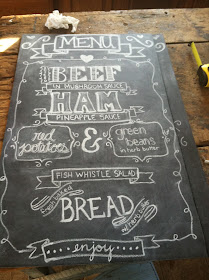 MENU
BEEF
IN MUSHROOM SAUCE
HAM
PINEAPPLE SAUCE
red potatoes
&
green beans
in herb butter
FISH WHISTLE SALAD
BREAD
....enjoy....